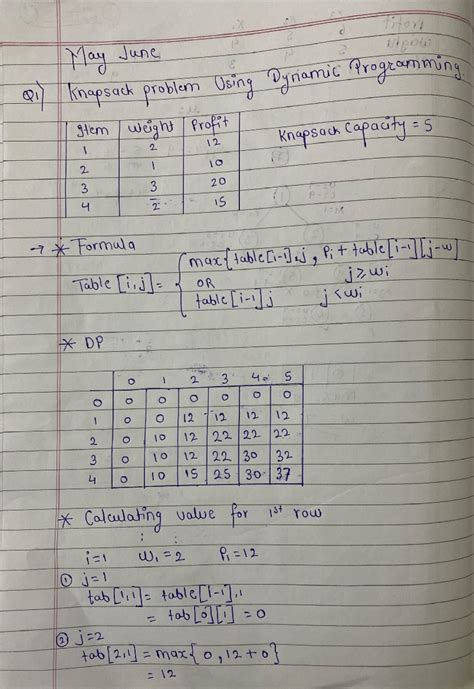 May June
Q1) Knapsack problem Using Dynamic Programming
Item Weight Profit
Knapsack Capacity = 5
1 2 12
2 1 10
3 3 20
4 2 15
→ * Formula
Table [i,j] = { max{table[i-1],j , Pi + table[i-1][j-w]
j ≥ wi
OR
table[i-1]j j < wi
* DP
0 1 2 3 4 5
0 0 0 0 0 0 0
1 0 0 12 12 12 12
2 0 10 12 22 22 22
3 0 10 12 22 30 32
4 0 10 15 25 30 37
* Calculating value for 1st row
i=1 W1 = 2 P1 = 12
① j=1
tab[1,1] = table[1-1],1
= tab[0][1] = 0
② j=2
tab[2,1] = max{0, 12+0}
= 12